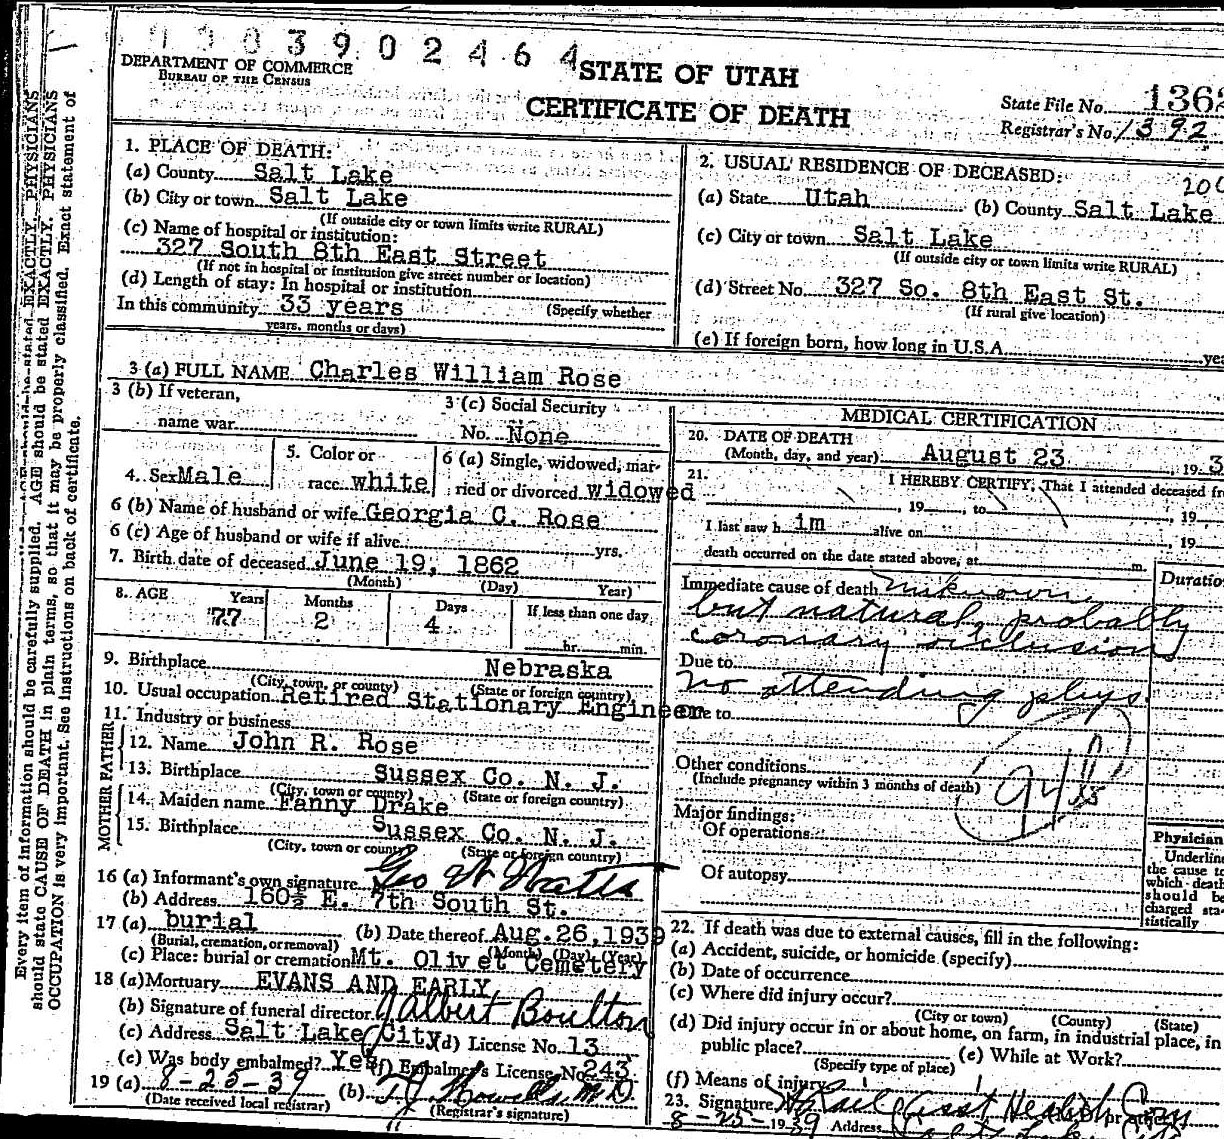 0 3 9 0 2 4 6 4
DEPARTMENT OF COMMERCE
BUREAU OF THE CENSUS
STATE OF UTAH
CERTIFICATE OF DEATH
State File No. 136
Registrar's No. 1392
Every item of information should be carefully supplied. AGE should be stated EXACTLY. PHYSICIANS
should state CAUSE OF DEATH in plain terms, so that it may be properly classified. Exact statement of
OCCUPATION is very important. See instructions on back of certificate.
1. PLACE OF DEATH:
(a) County Salt Lake
(b) City or town Salt Lake
(If outside city or town limits write RURAL)
(c) Name of hospital or institution:
327 South 8th East Street
(If not in hospital or institution give street number or location)
(d) Length of stay: In hospital or institution
In this community 33 years (Specify whether
years, months or days)
2. USUAL RESIDENCE OF DECEASED:
(a) State Utah (b) County Salt Lake
(c) City or town Salt Lake
(If outside city or town limits write RURAL)
(d) Street No. 327 So. 8th East St.
(If rural give location)
(e) If foreign born, how long in U.S.A.
3 (a) FULL NAME Charles William Rose
3 (b) If veteran,
name war
3 (c) Social Security
No. None
4. Sex Male
5. Color or
race white
6 (a) Single, widowed, mar-
ried or divorced widowed
6 (b) Name of husband or wife Georgia C. Rose
6 (c) Age of husband or wife if alive yrs.
7. Birth date of deceased June 19, 1862
(Month) (Day) Year)
8. AGE Years Months Days If less than one day
77 2 4
hr. min.
9. Birthplace Nebraska
(City, town, or county) (State or foreign country)
10. Usual occupation Retired Stationary Engineer
11. Industry or business
FATHER
12. Name John R. Rose
13. Birthplace Sussex Co. N. J.
(City, town or county) (State or foreign country)
MOTHER
14. Maiden name Fanny Drake
15. Birthplace Sussex Co. N. J.
(City, town or county) (State or foreign country)
16 (a) Informant's own signature Geo W Watts
(b) Address 160½ E. 7th South St.
17 (a) burial (b) Date thereof Aug. 26, 1939
(Burial, cremation, or removal) (Month) (Day) (Year)
(c) Place: burial or cremation Mt. Olivet Cemetery
18 (a) Mortuary EVANS AND EARLY
(b) Signature of funeral director Albert Boulton
(c) Address Salt Lake City (d) License No. 13
(e) Was body embalmed? Yes (f) Embalmer's License No. 243
19 (a) 8-25-39 (b) M.D.
(Date received local registrar) (Registrar's signature)
MEDICAL CERTIFICATION
20. DATE OF DEATH
(Month, day, and year) August 23 19 3
21. I HEREBY CERTIFY, That I attended deceased
, 19 , to , 19
I last saw h im alive on , 19
death occurred on the date stated above, at m.
Immediate cause of death unknown
but natural, probably
coronary occlusion
Due to
no attending phys.
Due to
Other conditions
(Include pregnancy within 3 months of death)
Major findings:
Of operations
Of autopsy
Duration
Physician
Underline
the cause to
which death
should be
charged sta-
tistically
22. If death was due to external causes, fill in the following:
(a) Accident, suicide, or homicide (specify)
(b) Date of occurrence
(c) Where did injury occur?
(City or town) (County) (State)
(d) Did injury occur in or about home, on farm, in industrial place, in
public place? (e) While at Work?
(Specify type of place)
(f) Means of injury
23. Signature Asst Health Com
8-25-1939 Address